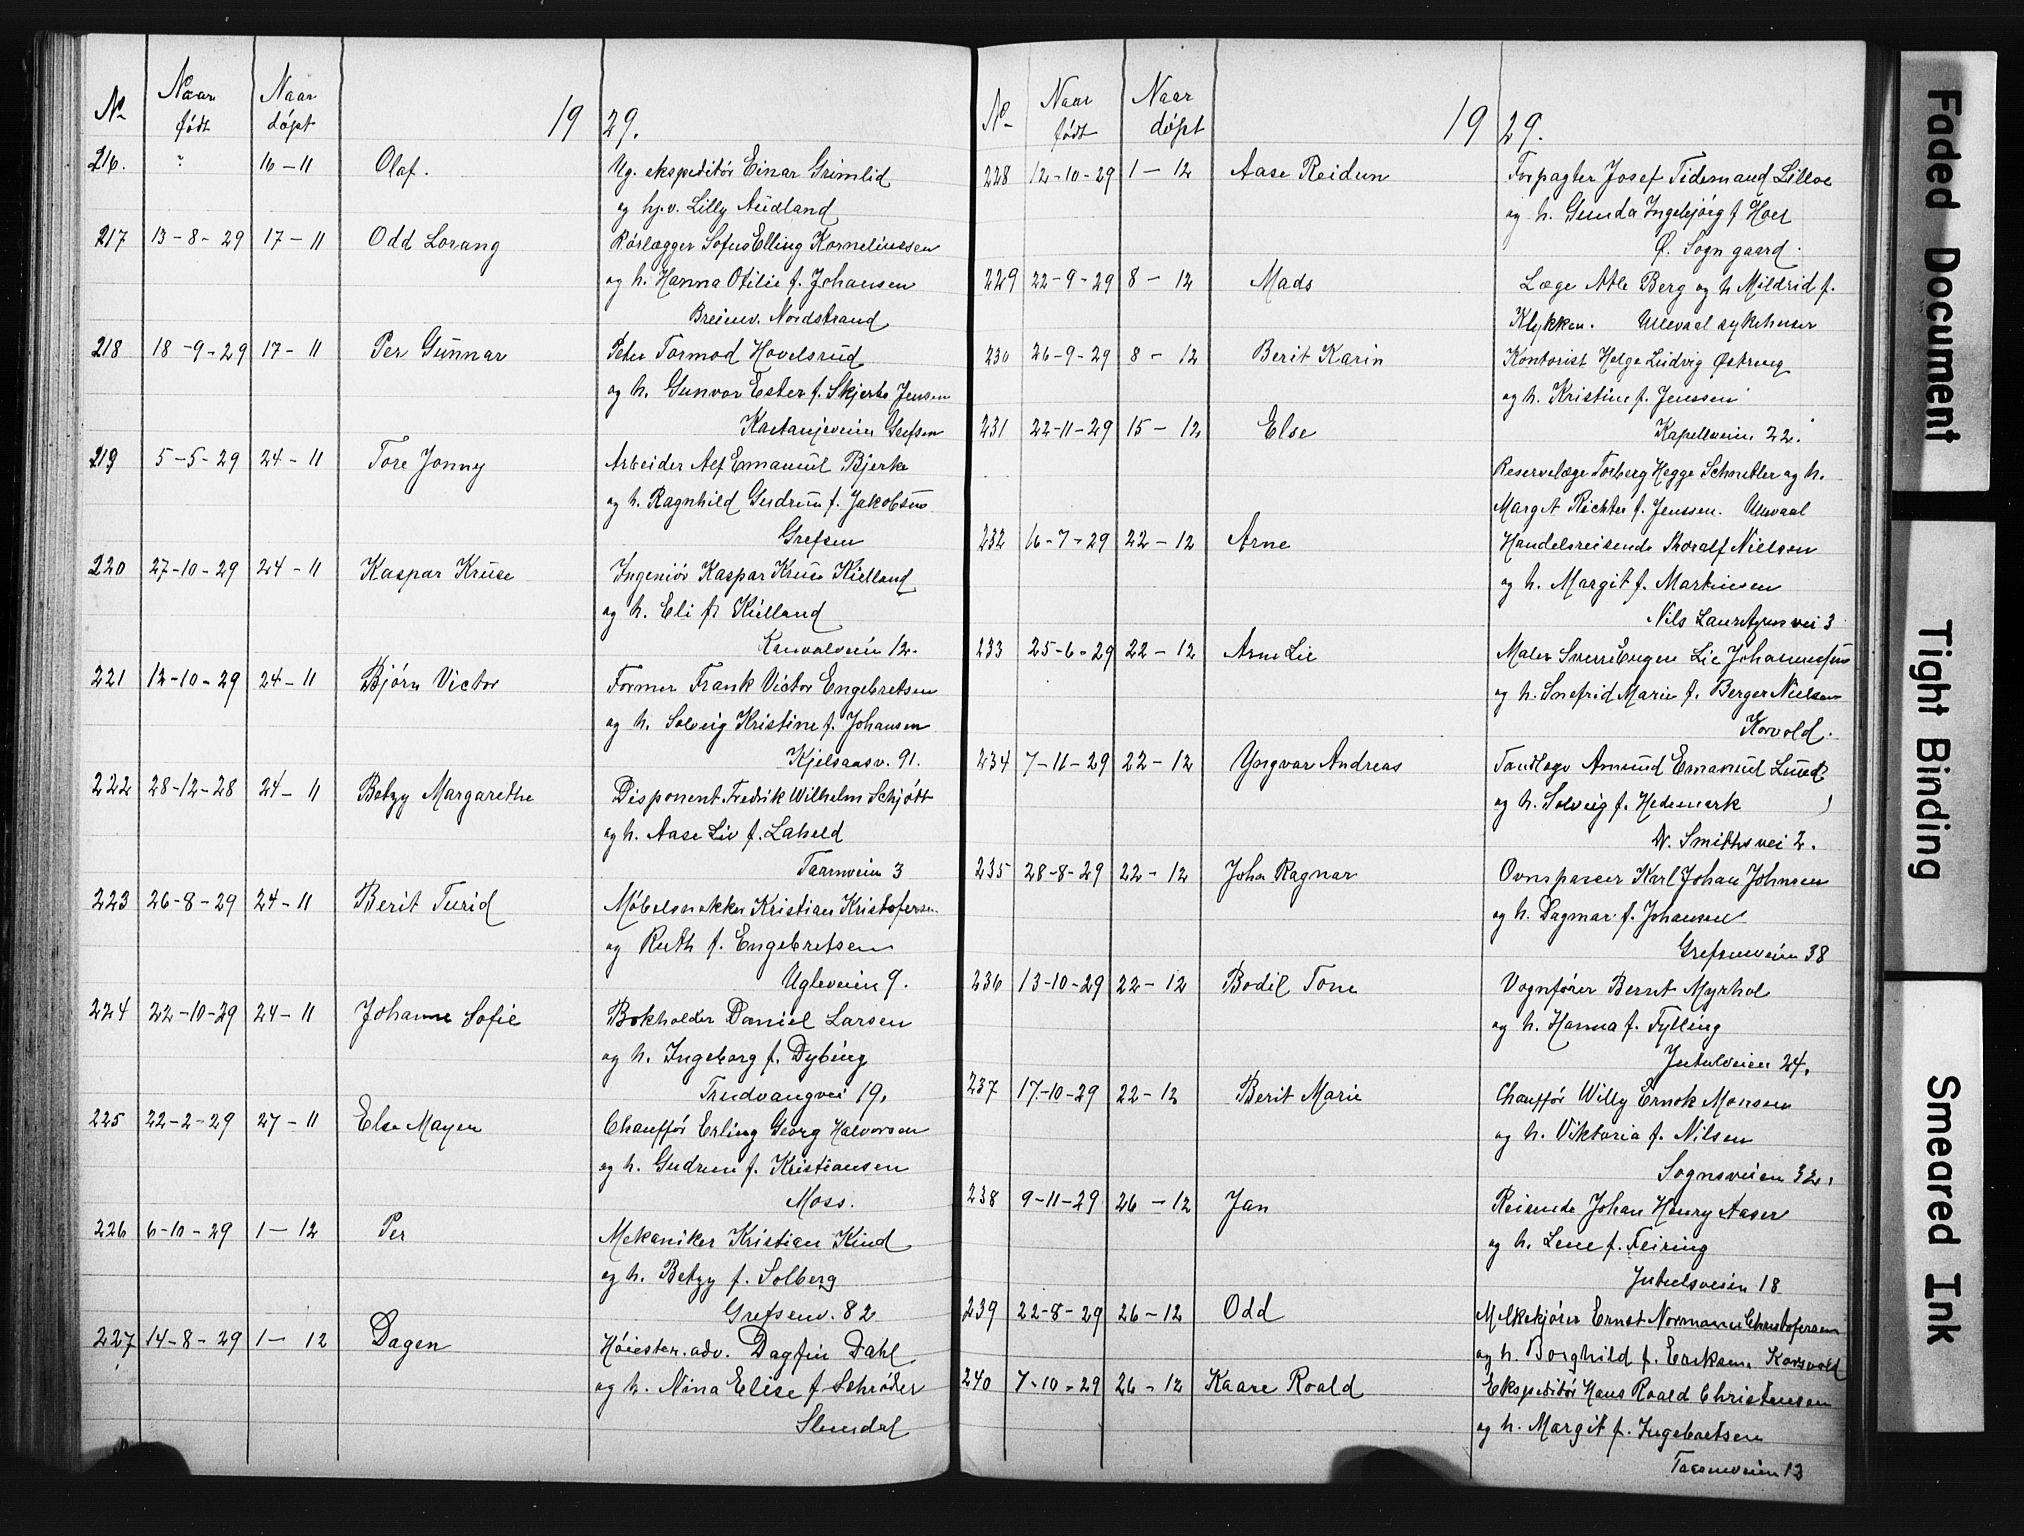 No Naar født Naar døpt 19 29.
216. ? 16-11 Olaf. Ug. ekspeditør Einar Grimlid
og hj.v. Lilly Audland
217 13-8-29 17-11 Odd Lorang Rørlægger Sofus Elling Korneliussen
og h. Hanna Otilie f. Johansen
Breinv. Nordstrand
218 18-9-29 17-11 Per Gunnar Peter Tormod Hovelsrud
og h. Gunvor Ester f. Skjerbo Jensen
Kastanjeveien Grefsen
219 5-5-29 24-11 Tore Jonny Arbeider Alf Emanuel Bjerke
og h. Ragnhild Gudrun f. Jakobsen
Grefsen
220 27-10-29 24-11 Kaspar Kruse Ingeniør Kaspar Kruse Kielland
og h. Eli f. Kielland
12.
221 12-10-29 24-11 Bjørn Victor Former Frank Victor Engebretsen
og h. Solveig Kristine f. Johansen
Kjelsaasv. 91.
222 28-12-28 24-11 Betzy Margarethe Disponent Fredrik Wilhelm Schjøtt
og h. Aase Liv f.
Taasenveien 3
223 26-8-29 24-11 Berit Turid Møbelsnekker Kristian Kristofersen
og Ruth f. Engebretsen
Ugleveien 9.
224 22-10-29 24-11 Johanne Sofie Bokholder Daniel Larsen
og h. Ingeborg f. Dybing
Trudvangvei 19.
225 22-2-29 27-11 Else Mayen Chauffør Erling Georg Halvorsen
og h. Gudrun f. Kristiansen
Moss.
226 6-10-29 1-12 Per Mekaniker Kristian Kind
og h. Betzy f. Solberg
Grefsenv. 82
227 14-8-29 1-12 Dagen Høiester.adv. Dagfin Dahl
og h. Nina Elise f. Schrøder
Slemdal
No Naar født Naar døpt 19 29.
228 12-10-29 1-12 Aase Reidun Forpagter Josef Tidemand Lilloe
og h. Gunda Ingebjørg f. Hoel
Ø. Sogn gaard.
229 22-9-29 8-12 Mads Læge Atle Berg og h. Mildrid f.
Klykken. Ullevaal sykehuser
230 26-9-29 8-12 Berit Karin Kontorist Helge Ludvig Østreng
og h. Kristine f. Jenssen
231 22-11-29 15-12 Else Kapellveien 22.
Reservelæge Torberg Hegge Schnitler og h.
Margit Richter f. Jenssen. Ullevaal
232 16-7-29 22-12 Arne Handelsreisende Thoralf Nielsen
og h. Margit f. Martinsen
Nils Lauritzens vei 3
233 25-6-29 22-12 Arne Lie Maler Sverre Eugen Lie Johannessen
og h. Snefrid Marie f. Berger Nielsen
Korvold.
234 7-11-29 22-12 Yngvar Andreas Tandlæge Amund Emanuel Lund
og h. Solveig f. Hedemark
Dr. Smiths vei 2.
235 28-8-29 22-12 John Ragnar Ovnspasser Karl Johan Johnsen
og h. Dagmar f. Johansen
Grefsenveien 38
236 13-10-29 22-12 Bodil Tone Vognfører Bernt Myrhol
og h. Hanna f. Fylling
Jutulveien 24.
237 17-10-29 22-12 Berit Marie Chauffør Willy Ernok Monssen
og h. Viktoria f. Nilsen
Sognsveien 32.
238 9-11-29 26-12 Jan Reisende Johan Henry Aaser
og h. Lene f. Feiring
Jutulsveien 18
239 22-8-29 26-12 Odd Melkekjører Ernst Normann Christofersen
og h. Borghild f. Eriksen Korsvold
240 7-10-29 26-12 Kaare Roald Ekspeditør Hans Roald Christensen
og h. Margit f. Ingebretsen
Taasenveien 13
Faded Document
Tight Binding
Smeared Ink